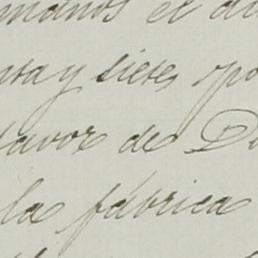 manos el
nta y siete, opo
favor de D
la fábrica